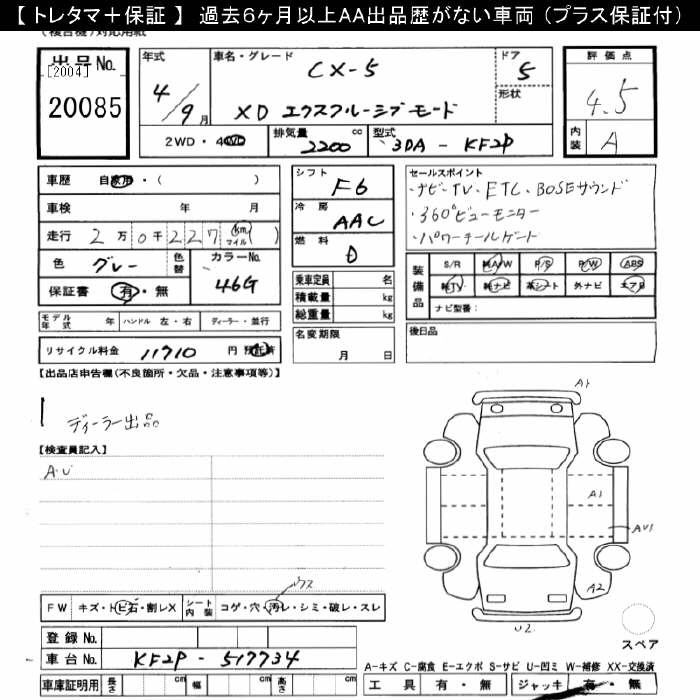 【 トレタマ＋保証 】 過去6ヶ月以上AA出品歴がない車両（プラス保証付）
(複合機)対応用紙
出品No.
[2004]
20085
年式
4/9月
車名・グレード
CX-5
XD エクスクルーシブモード
ドア
5
形状
評価点
4.5
内装 A
2WD・4WD
排気量 2200 cc
型式 3DA - KF2P
車歴 自家用・( )
車検 年 月
走行 2万0千227 (km マイル)( )
色 グレー 色替
カラーNo. 46G
保証書 有・無
モデル年式 年 ハンドル 左・右 ディーラー・並行
リサイクル料金 11710 円 預託済
シフト F6
冷房 AAC
燃料 D
乗車定員 名
積載量 kg
総重量 kg
名変期限
月 日
セールスポイント
・ナビ・TV・ETC・BOSEサウンド
・360°ビューモニター
・パワーテールゲート
装備品
S/R 純A/W P/S P/W ABS
純TV 純ナビ 革シート 外ナビ エアB
ナビ型番：
後日品
【出品店申告欄(不良個所・欠品・注意事項等)】
ディーラー出品
【検査員記入】
A・U
ウス
FW キズ・トビ石・割レX シート内装 コゲ・穴・汚レ・シミ・破レ・スレ
登録No.
車台No. KF2P - 517734
車庫証明用 長さ cm 幅 cm 高さ cm
A1
A1
AU1
A2
U2
スペア
A-キズ C-腐食 E-エクボ S-サビ U-凹ミ W-補修 XX-交換済
工具 有・無 ジャッキ 有・無